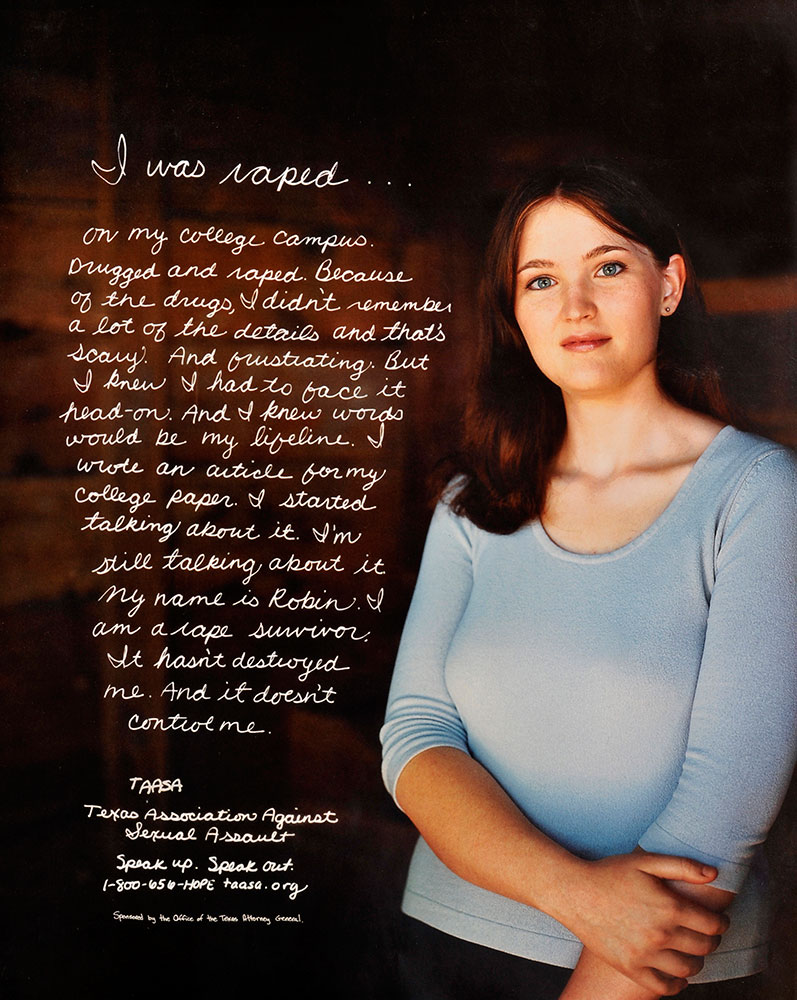 I was raped ...
on my college campus.
Drugged and raped. Because
of the drugs, I didn't remember
a lot of the details and that's
scary. And frustrating. But
I knew I had to face it
head-on. And I knew words
would be my lifeline. I
wrote an article for my
college paper. I started
talking about it. I'm
still talking about it
My name is Robin. I
am a rape survivor.
It hasn't destroyed
me. And it doesn't
control me.
TAASA
Texas Association Against
Sexual Assault
Speak up. Speak out.
1-800-656-HOPE taasa.org
Sponsored by the Office of the Texas Attorney General.